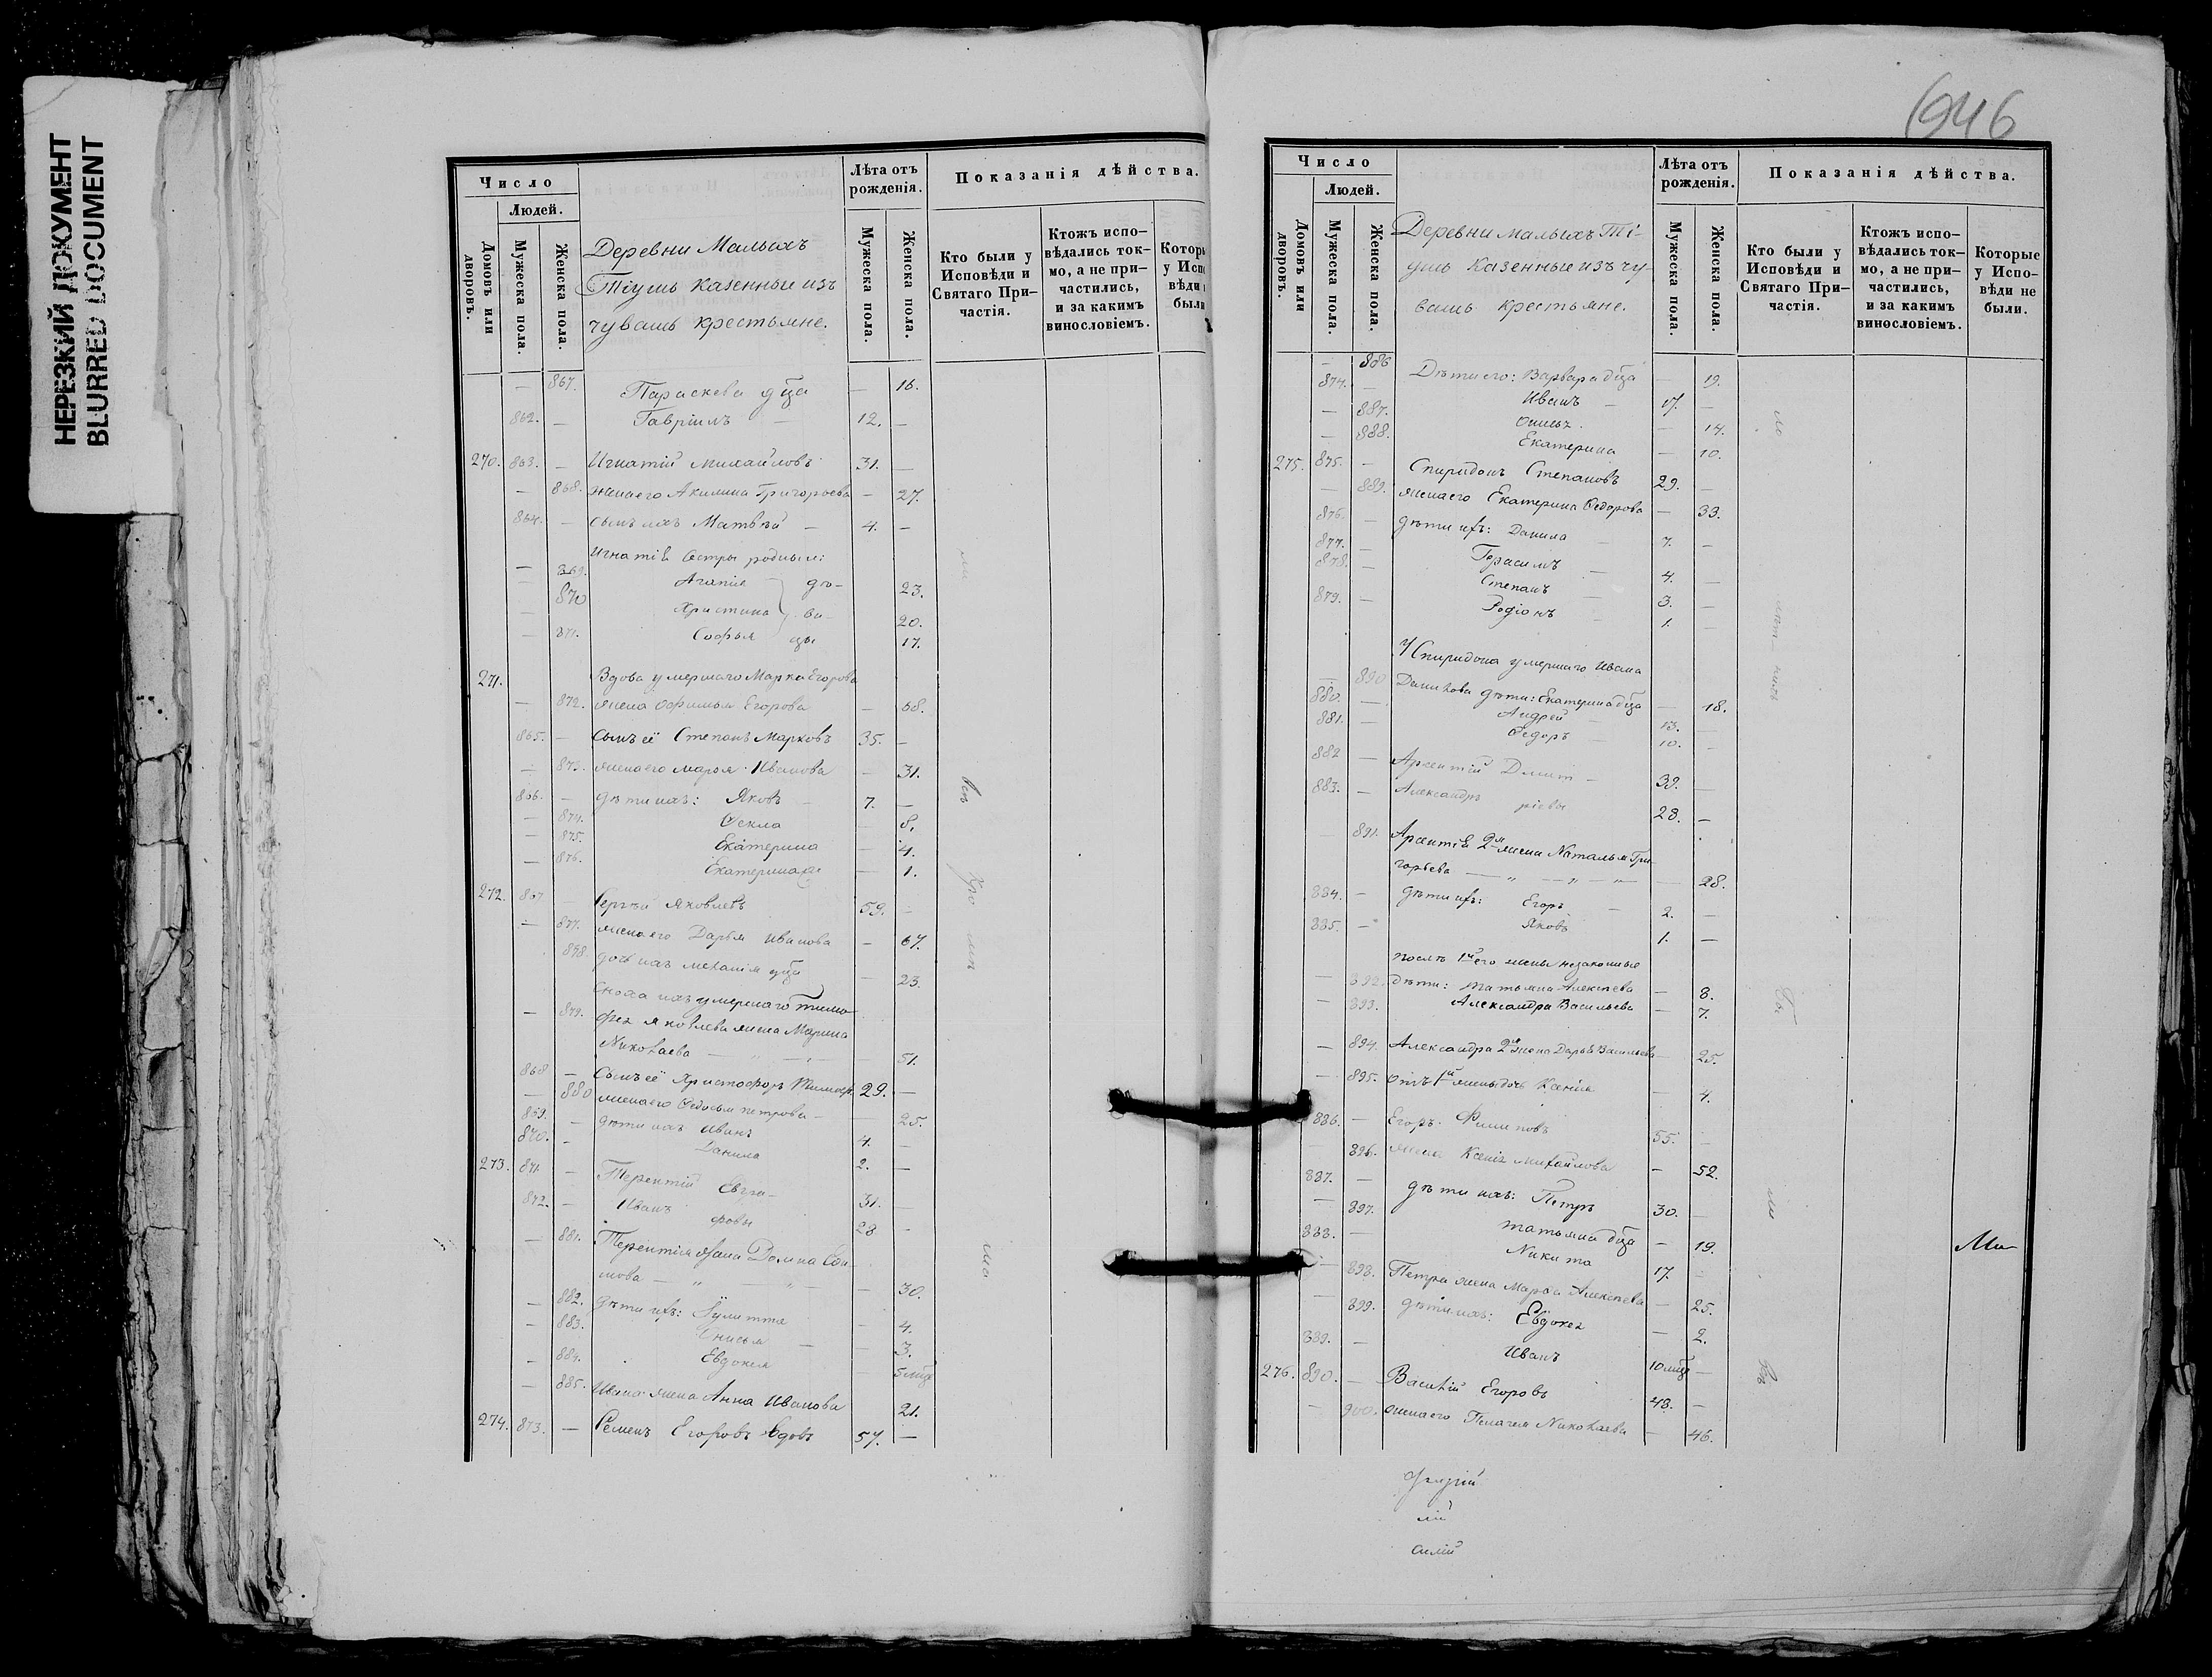 НЕРЕЗКИЙ ДОКУМЕНТ
BLURRED DOCUMENT
Число
Людей.
Домовъ или дворовъ.
Мужеска пола.
Женска пола.
Деревни Малыхъ
Тіушь казенные изъ
чувашь крестьяне.
Лѣта отъ рожденія.
Мужеска пола.
Женска пола.
Показанія дѣйства.
Кто были у Исповѣди и Святаго Причастія.
Ктожъ исповѣдались токмо, а не причастились, и за какимъ винословіемъ.
Которы
у Исп
вѣди
были
— 867. Параскева дца — 16.
862. — Гавріилъ — 12. —
270. 863. — Игнатій Михайловъ 31. —
— 868. жена его Акилина Григорьева — 27.
864. — сынъ ихъ Матвѣй — 4. —
Игнатія сестры родныя:
— 869. Агапія дѣ- 23.
— 870 Христина ви- 20.
— 871. Софья цы 17.
271. Вдова умершаго Марка Егорова
— 872. жена Офимья Егорова — 68.
865. — Сынъ её Степанъ Марковъ 35. —
— 873. жена его Марья Иванова — 31.
866. — дѣти ихъ: Яковъ — 7. —
— 874. Фекла — 8.
— 875. Екатерина — 4.
— 876. Екатерина — 1.
272. 867 — Сергѣй Яковлевъ 59. —
— 877. жена его Дарья Иванова — 67.
878. дочь ихъ Меланія дца — 23.
Сноха ихъ умершаго Тимо-
— 879. фея Яковлева жена Марина
Николаева — 51.
868 — Сынъ её Христофоръ Тимоф. 29. —
— 880 жена его Федосья Петрова — 25.
869. — дѣти ихъ Иванъ 4. —
870. — Данила 2. —
273. 871. — Терентій Евгра- 31. —
872. — Иванъ фовы 28 —
— 881. Терентія жена Домна
— 30.
— 882. дѣти ихъ: Улитта — 4.
— 883. Анисья — 3.
— 884. Евдокія — 5 мцъ
— 885. Ивана жена Анна Иванова 21.
274. 873. — Семенъ Егоровъ вдовъ 57. —
946
Число
Людей.
Домовъ или дворовъ.
Мужеска пола.
Женска пола.
Деревни Малыхъ Ті-
ушь казенные изъ чу-
вашь крестьяне.
Лѣта отъ рожденія.
Мужеска пола.
Женска пола.
Показанія дѣйства.
Кто были у Исповѣди и Святаго Причастія.
Ктожъ исповѣдались токмо, а не причастились, и за какимъ винословіемъ.
Которые у Исповѣди не были.
— 886 Дѣти его: Варвара дца — 19.
874. — Иванъ — 17. —
— 887. — 14.
— 888. Екатерина — 10.
275. 875. — Спиридонъ Степановъ 29. —
— 889. жена его Екатерина Федорова — 33.
876. — дѣти ихъ: Данила 7. —
877. — Герасимъ 4. —
878. — Степанъ 3. —
879. — Родіонъ 1. —
У Спиридона умершаго Ивана
— 890 Данилова дѣти: Екатерина дца — 18.
880. — Андрей 13. —
881. — Федоръ 10. —
882 — Арсентій Дмит- 39. —
883. — Александръ ріевы 28. —
— 891. Арсентія 2я жена Наталья Гри-
горьева — 28.
884. — дѣти ихъ: Егоръ 2. —
885. — Яковъ 1. —
послѣ 1й его жены незаконные
— 892. дѣти: Татьяна Алексѣева — 8.
— 893. Александра Васильева — 7.
— 894. Александра 2я жена Дарья Васильева — 25.
— 895. отъ 1й жены дочь Ксенія — 4.
886. — Егоръ Филиповъ 55. —
896. жена Ксенія Михайлова — 52.
887. — дѣти ихъ: Петръ 30. —
— 897. Татьяна дца — 19.
888. — Никита 17. —
— 898. Петра жена Марфа Алексѣева — 25.
— 899. дѣти ихъ: Евдокея — 2.
889. — Иванъ 10 мцъ —
276. 890. — Василій Егоровъ 48. —
— 900. жена его Пелагея Николаева — 46.